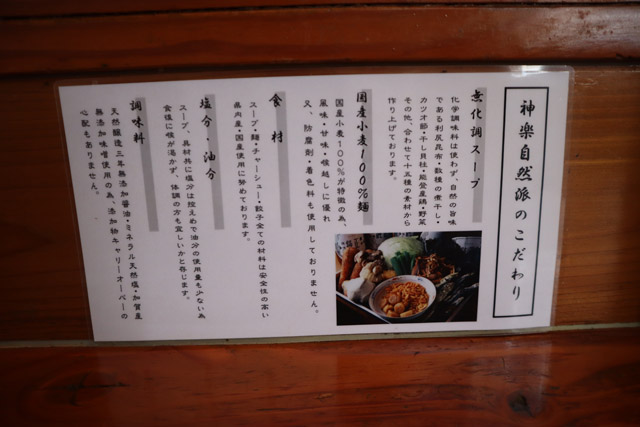 神楽自然派のこだわり
無化調スープ
化学調味料は使わず、自然の旨味
である利尻昆布・数種の煮干し・
カツオ節・干し貝柱・能登産鶏・野菜
その他、合わせて十三種の素材から
作り上げております。
国産小麦100%麺
国産小麦100%が特徴の為、
風味・甘味・喉越しに優れ
又、防腐剤・着色料も使用しておりません。
食材
スープ・麺・チャーシュー・餃子全ての材料は安全性の高い
県内産・国産使用に努めております。
塩分・油分
スープ、具材共に塩分は控えめで油分の使用量も少ない為
食後に喉が渇かず、体調の方も宜しいかと存じます。
調味料
天然醸造三年無添加醤油・ミネラル天然塩・加賀産
無添加味噌使用の為、添加物キャリーオーバーの
心配もありません。